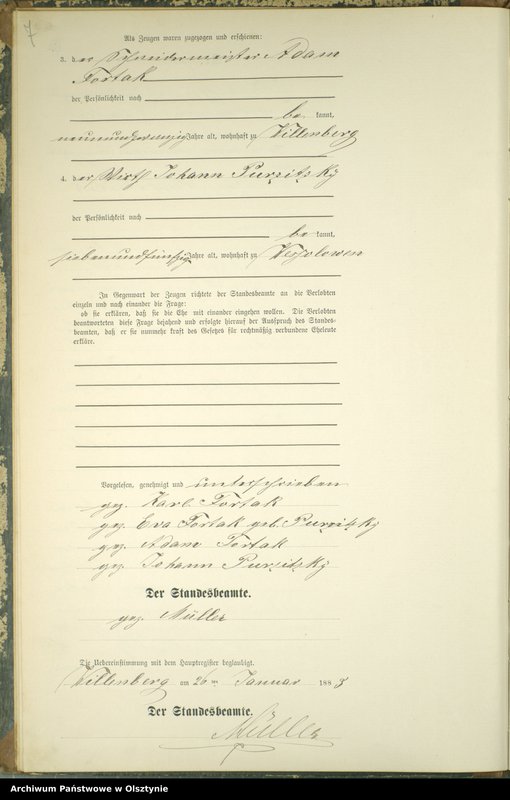 7
Als Zeugen waren zugezogen und erschienen:
3. der Schneidermeister Adam
Fortak
der Persönlichkeit nach
be kannt,
Jahre alt, wohnhaft zu Willenberg
4. der Wirth Johann Purzitzky
der Persönlichkeit nach
be kannt,
siebenundfünfzig Jahre alt, wohnhaft zu Wessolowen
In Gegenwart der Zeugen richtete der Standesbeamte an die Verlobten
einzeln und nach einander die Frage:
ob sie erklären, daß sie die Ehe mit einander eingehen wollen. Die Verlobten
beantworteten diese Frage bejahend und erfolgte hierauf der Ausspruch des Standes-
beamten, daß er sie nunmehr kraft des Gesetzes für rechtmäßig verbundene Eheleute
erkläre.
Vorgelesen, genehmigt und unterschrieben
gez. Karl Fortak
gez. Eva Fortak geb. Purzitzky
gez. Adam Fortak
gez. Johann Purzitzky
Der Standesbeamte.
gez. Müller
Die Uebereinstimmung mit dem Hauptregister beglaubigt.
Willenberg am 26ten Januar 1888
Der Standesbeamte.
Müller
Archiwum Państwowe w Olsztynie